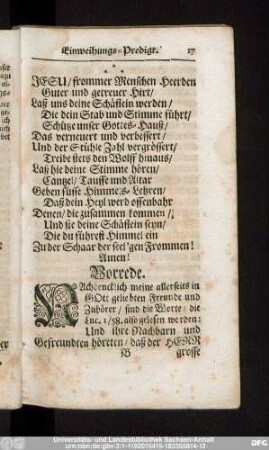 Einweihungs-Predigt. 17
JESU/ frommer Menschen Heerden
Guter und getreuer Hirt/
Laß uns deine Schäflein werden/
Die dein Stab und Stimme führt/
Schütze unser Gottes-Hauß/
Das verneuert und verbessert/
Und der Stühle Zahl vergrössert/
Treibe stets den Wolff hinaus/
Laß hie deine Stimme hören/
Cantzel/ Tauffe und Altar
Geben süsse Himmels-Lehren/
Daß dein Heyl werd offenbahr
Denen/ die zusammen kommen/
Und sie deine Schäflein seyn/
Die du führest Himmel ein
Zu der Schaar der seel'gen Frommen!
Amen!
Vorrede.
NAchdencklich meine allerseits in
GOtt geliebten Freunde und
Zuhörer/ sind die Worte/ die
Luc. 1/58. also gelesen werden:
Und ihre Nachbarn und
Gefreundten höreten/ daß der HERR
B grosse
Universitäts- und Landesbibliothek Sachsen-Anhalt
DFG